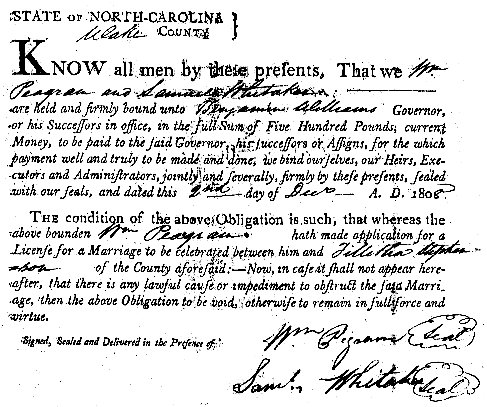 STATE OF NORTH-CAROLINA }
Wake COUNTY
KNOW all men by these presents, That we Wm
Peagram and Samuel Whitaker
are held and firmly bound unto Benjamin Williams Governor,
or his Successors in office, in the full Sum of Five Hundred Pounds, current
Money, to be paid to the said Governor, his successors or Assigns, for the which
payment well and truly to be made and done, we bind ourselves, our Heirs, Exe-
cutors and Administrators, jointly and severally, firmly by these presents, sealed
with our seals, and dated this 2nd day of Decr A. D. 1808.
THE condition of the above Obligation is such, that whereas the
above bounden Wm Peagram hath made application for a
License for a Marriage to be celebrated between him and
of the County aforesaid:—Now, in case it shall not appear here-
after, that there is any lawful cause or impediment to obstruct the said Marri-
age, then the above Obligation to be void, otherwise to remain in full force and
virtue.
Signed, Sealed and Delivered in the Presence of
Wm Pigram Seal
Saml. Whitaker Seal